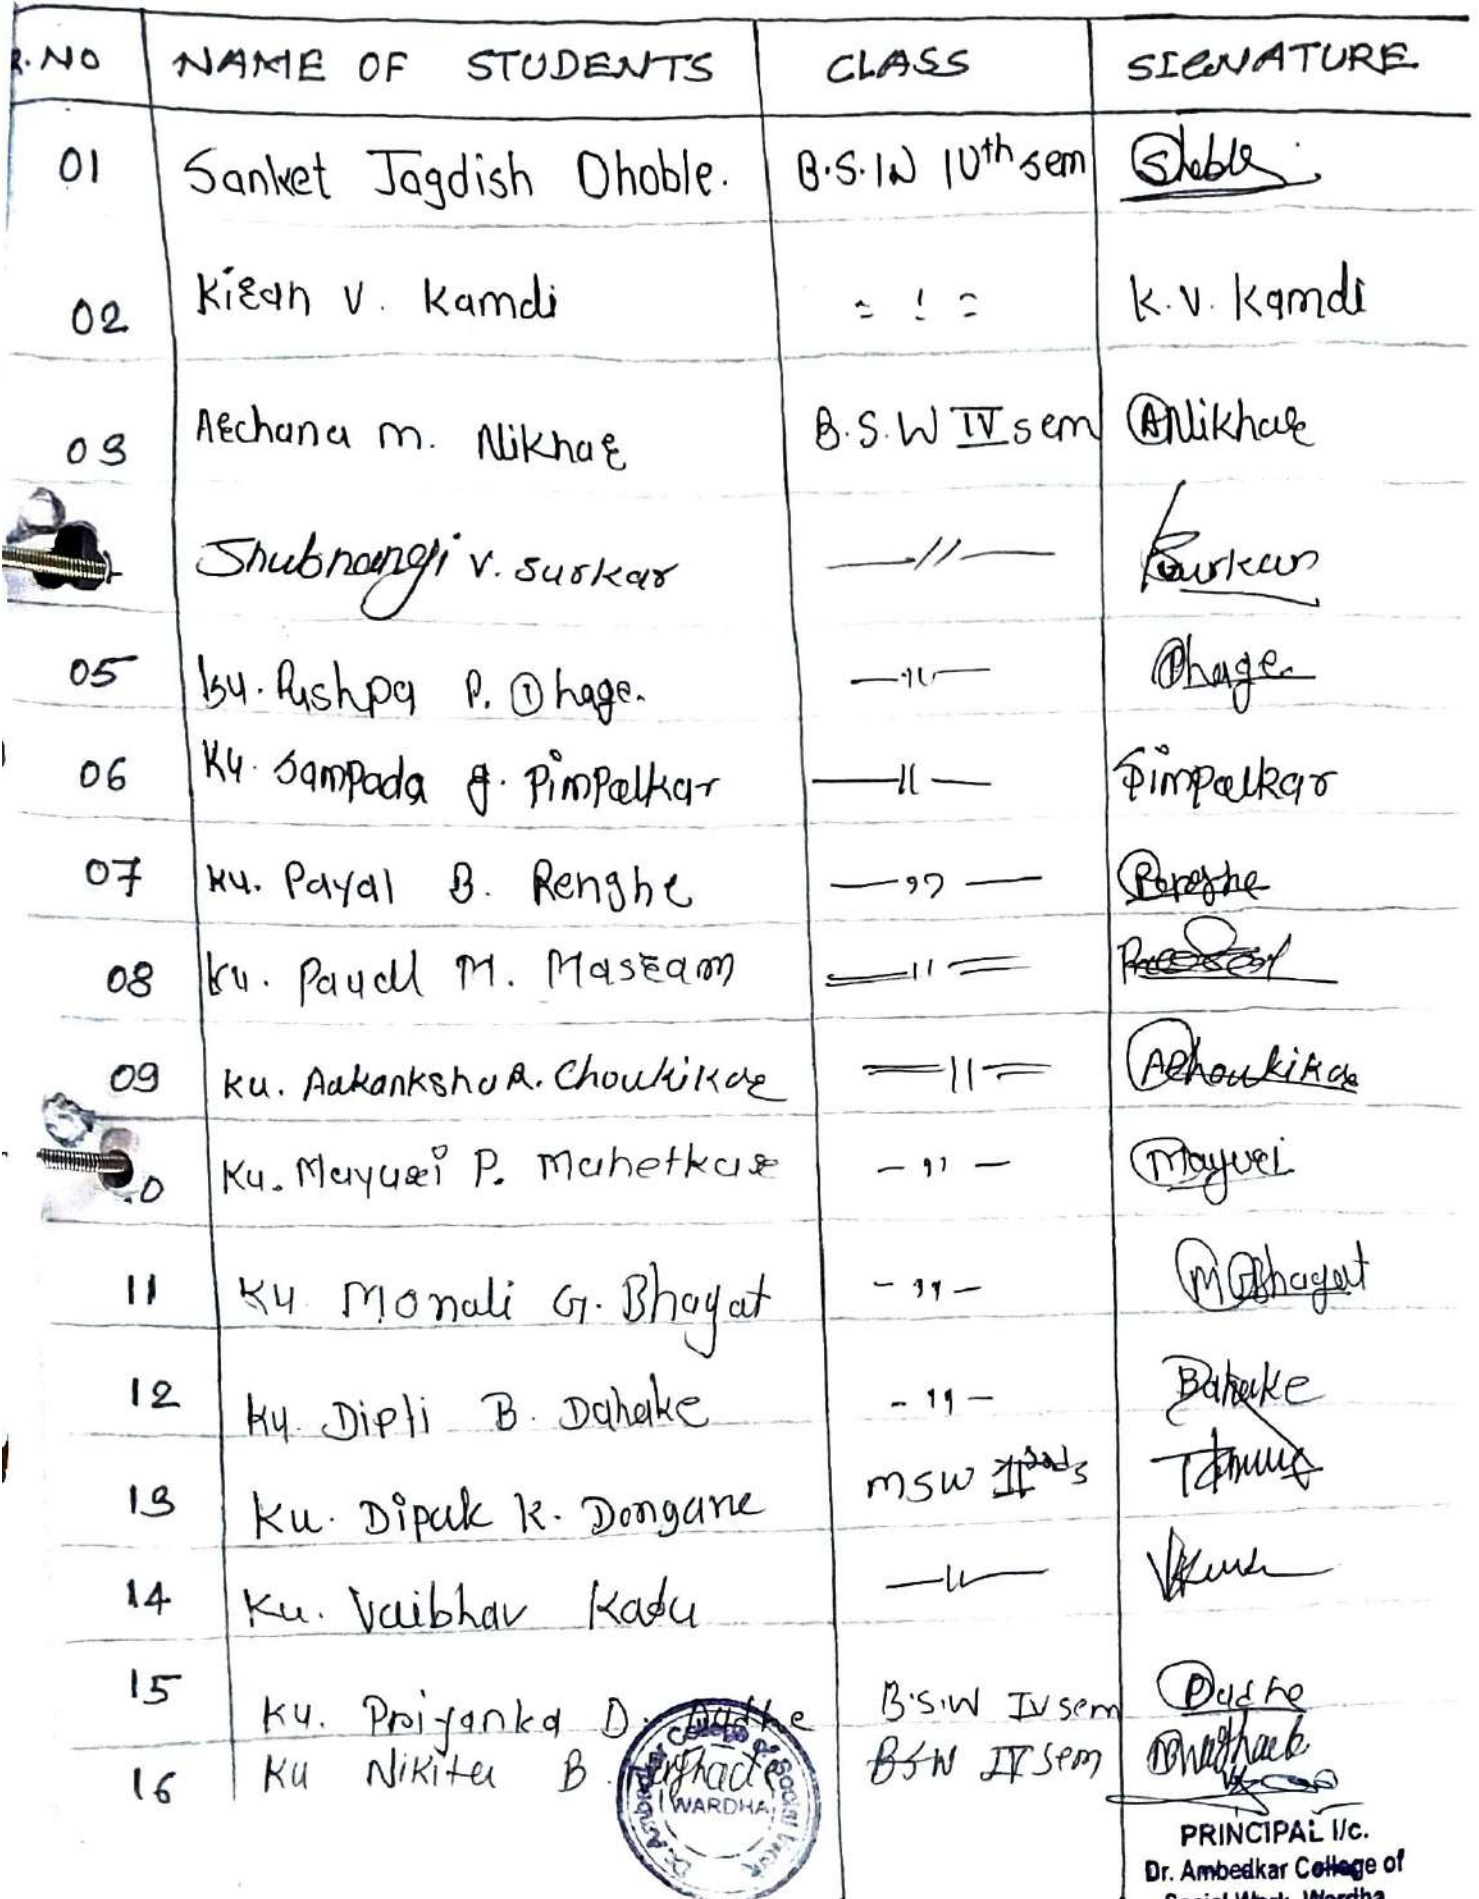 R.NO NAME OF STUDENTS CLASS SIGNATURE
01 Sanket Jagdish Dhoble. B.S.W IVth sem Dhoble
02 Kiran V. Kamdi = ! = K.V. Kamdi
03 Archana M. Nikhar B.S.W IV sem ANikhar
Shubhangi V. Surkar —//— Surkar
05 Ku. Pushpa P. Dhage. —"— Dhage
06 Ku. Sampada g. Pimpalkar —"— Pimpalkar
07 Ku. Payal B. Renghe —"— Renghe
08 Ku. Payal M. Masram —"—
09 Ku. Aakanksha R. Choukikar —"— AChoukikar
10 Ku. Mayuri P. Mahetkar —"— Mayuri
11 Ku Monali G. Bhagat -"- MGBhagat
12 Ku. Dipti B. Dahake -"- Dahake
13 Ku. Dipak K. Dongare MSW II
14 Ku. Vaibhav Kadu —"—
15 Ku. Priyanka D. B.S.W IV sem
16 Ku Nikita B. BSW IV Sem
Dr. Ambedkar College of Social Work
WARDHA
PRINCIPAL I/c.
Dr. Ambedkar College of
Social Work, Wardha